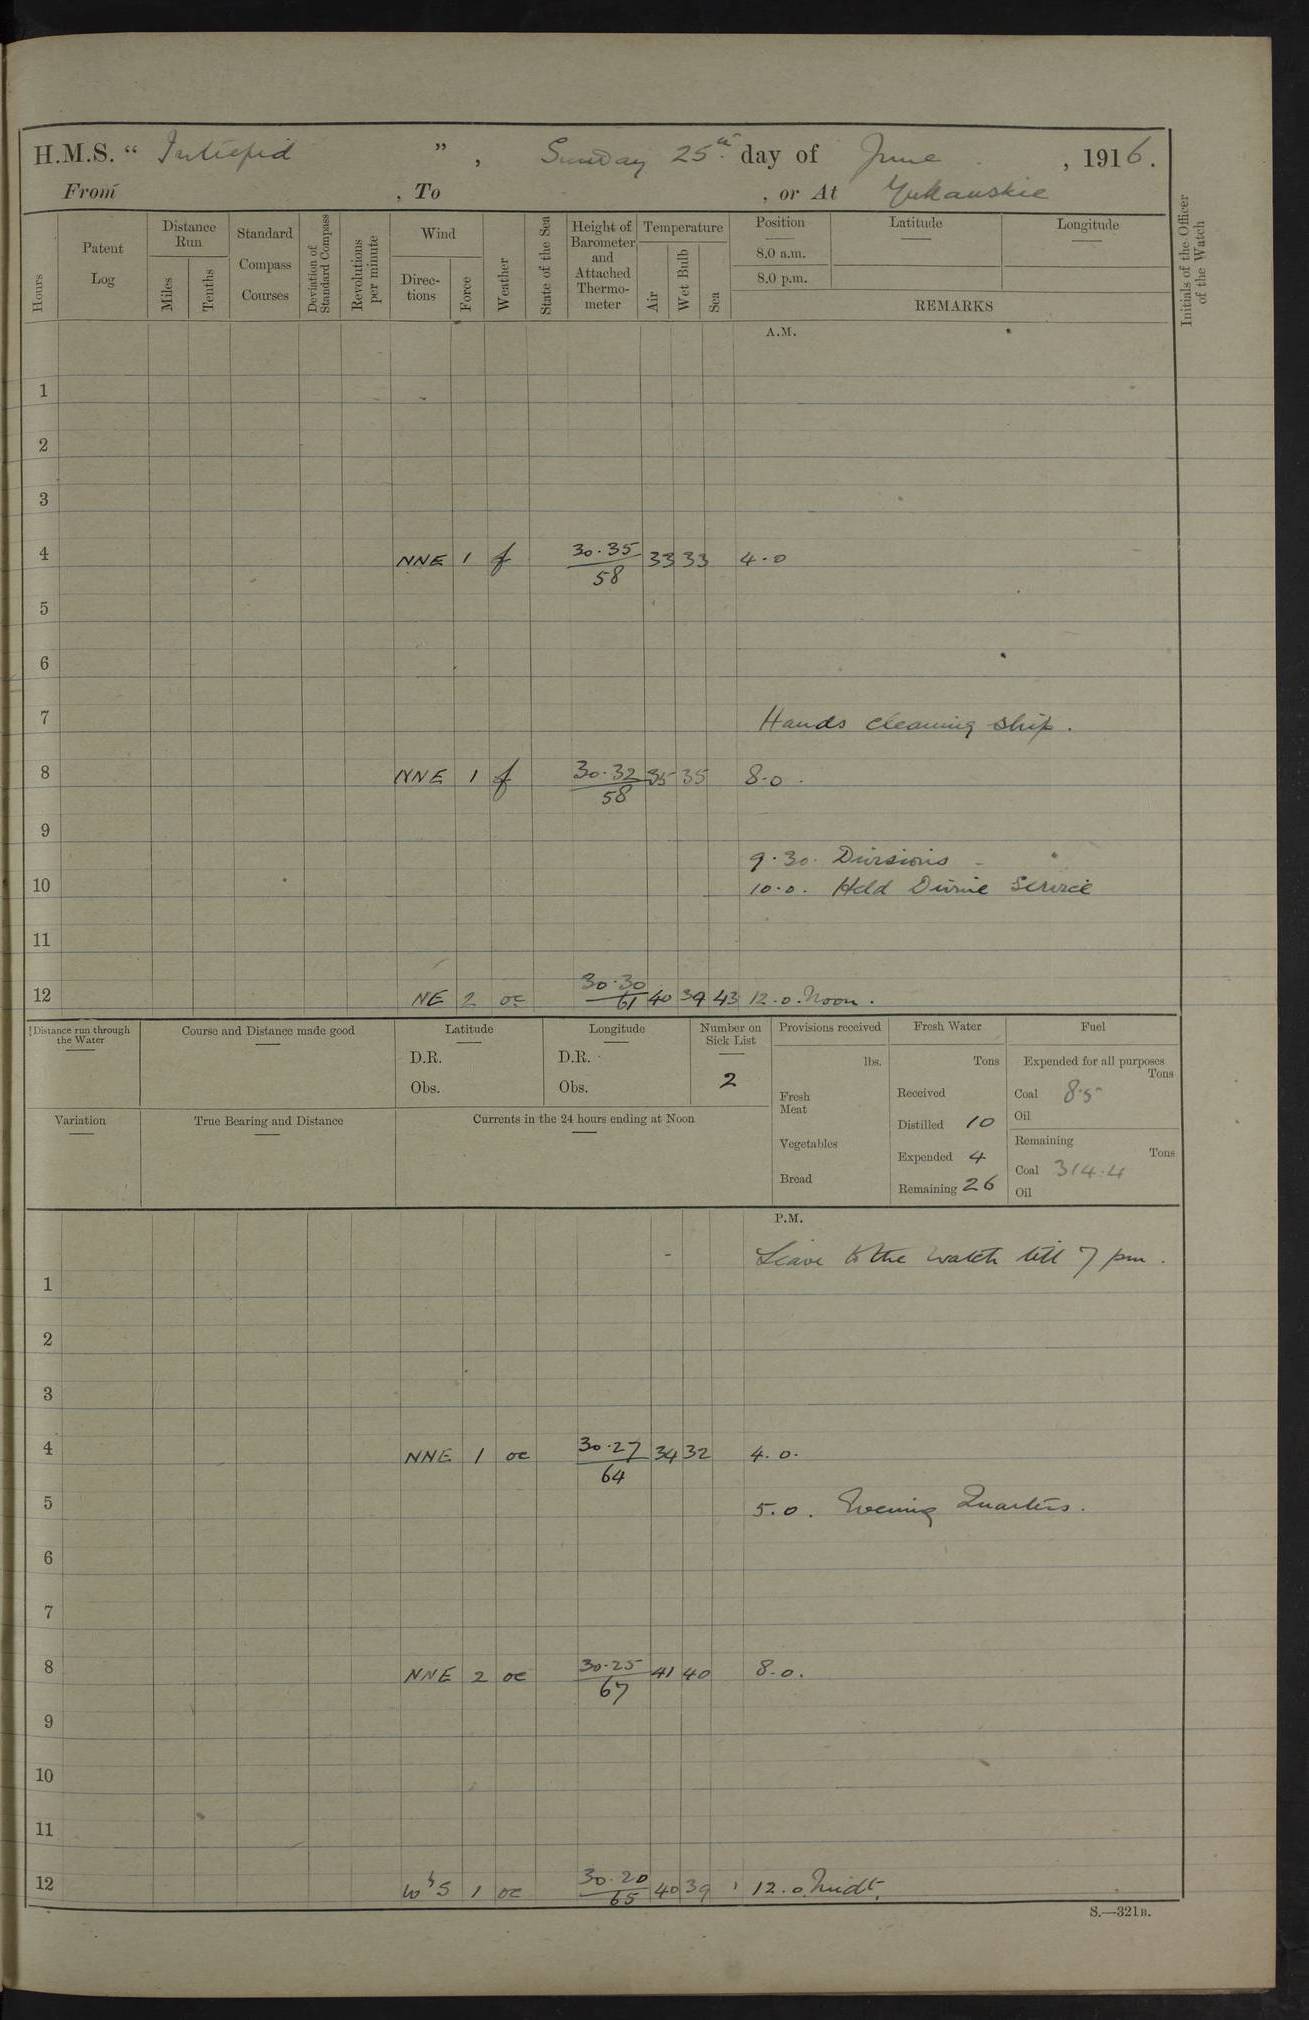 H.M.S. “ Intrepid ” , Sunday 25th. day of June , 1916.
From , To , or At Yukanskie
Hours
Patent Log
Distance Run
Miles
Tenths
Standard Compass Courses
Deviation of Standard Compass
Revolutions per minute
Wind
Directions
Force
Weather
State of the Sea
Height of Barometer and Attached Thermometer
Temperature
Air
Wet Bulb
Sea
Position
8.0 a.m.
8.0 p.m.
Latitude
Longitude
REMARKS
Initials of the Officer of the Watch
A.M.
1
2
3
4 NNE 1 f 30.35/58 33 33 4.0
5
6
7 Hands cleaning ship.
8 NNE 1 f 30.32/58 35 35 8.0.
9
9.30. Divisions
10 10.0. Held Divine Service
11
12 NE 2 oc 30.30/61 40 39 43 12.0. Noon.
Distance run through the Water
Course and Distance made good
Latitude
D.R.
Obs.
Longitude
D.R.
Obs.
Number on Sick List
2
Provisions received
lbs.
Fresh Meat
Vegetables
Bread
Fresh Water
Tons
Received
Distilled 10
Expended 4
Remaining 26
Fuel
Expended for all purposes
Tons
Coal 8.5
Oil
Remaining
Tons
Coal 314.4
Oil
Variation
True Bearing and Distance
Currents in the 24 hours ending at Noon
P.M.
Leave to the watch till 7 pm.
1
2
3
4 NNE 1 oc 30.27/64 34 32 4.0.
5 5.0. Evening Quarters.
6
7
8 NNE 2 oc 30.25/67 41 40 8.0.
9
10
11
12 WbS 1 oc 30.20/65 40 39 12.0. Midt.
S.—321B.